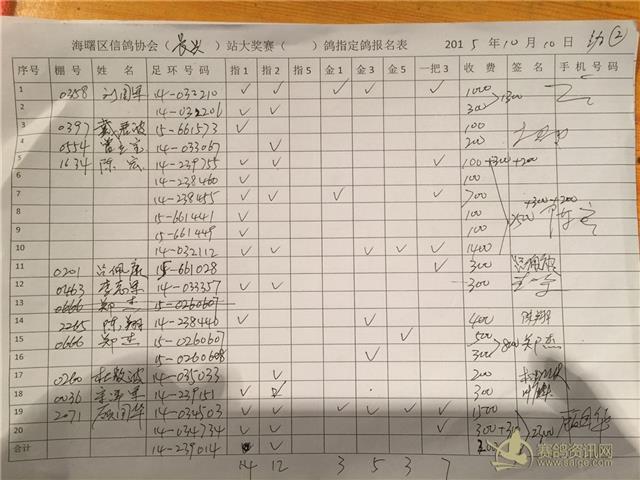 海曙区信鸽协会（长兴）站大奖赛（ ）鸽指定鸽报名表 2015年10月10日 ②
序号 棚号 姓名 足环号码 指1 指3 指5 金1 金3 金5 一把3 收费 签名 手机号码
1 0358 14-032210 ✓ ✓ ✓ ✓ 1000
2 14-032206 ✓ ✓ 300 >1300
3 0397 15-661573 ✓ 100
4 0554 14-033067 ✓ 200
5 1634 陈宏 14-239755 ✓ ✓ ✓ 100+300+200
6 14-238460 ✓ 100
7 14-238455 ✓ ✓ ✓ ✓ 700
8 15-661441 ✓ 100
9 15-661449 ✓ 100
10 14-032112 ✓ ✓ ✓ ✓ ✓ 1400
11 0201 吕佩康 15-661028 ✓ 300
12 0463 14-033357 ✓ ✓ 300
13 0666 郑杰 15-0260607
14 2265 陈翔 14-238446 ✓ ✓ 400 陈翔
15 0666 郑杰 15-0260607 ✓ 500
16 15-0260608 ✓ 300 >800 郑杰
17 0260 14-035033 ✓ 200
18 0036 14-239151 ✓ ✓ 300
19 2071 14-034503 ✓ ✓ ✓ ✓ ✓ ✓ 1500
20 14-034734 ✓ ✓ ✓ 300+300 >2300
合计 14-239014 ✓
14 12 3 5 3 7
赛鸽资讯网
www.saige.com